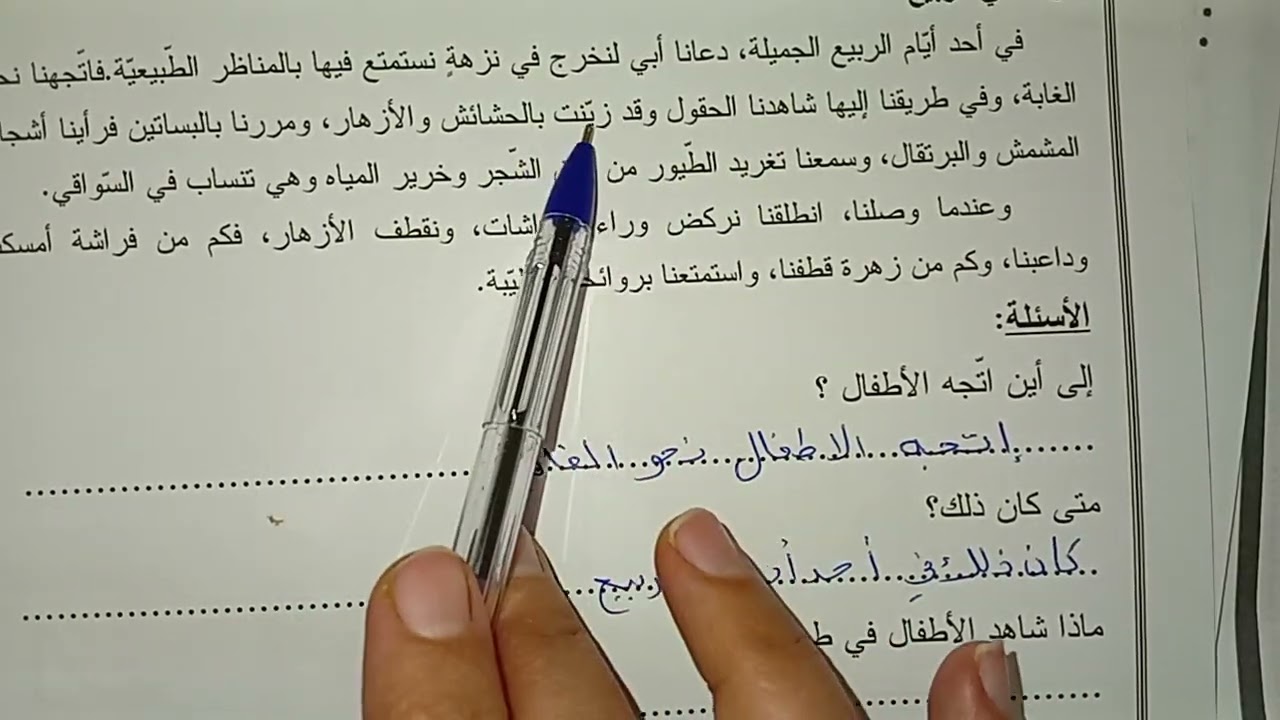 في أحد أيّام الربيع الجميلة، دعانا أبي لنخرج في نزهةٍ نستمتع فيها بالمناظر الطّبيعيّة.فاتّجهنا
الغابة، وفي طريقنا إليها شاهدنا الحقول وقد زيّنت بالحشائش والأزهار، ومررنا بالبساتين فرأينا
المشمش والبرتقال، وسمعنا تغريد الطّيور من الشّجر وخرير المياه وهي تنساب في السّواقي.
وعندما وصلنا، انطلقنا نركض ونقطف الأزهار، فكم من فراشة
وداعبنا، وكم من زهرة قطفنا، واستمتعنا
الأسئلة:
إلى أين اتّجه الأطفال ؟
إتجه الاطفال نحو
متى كان ذلك؟
كان ذلك في أحد
ماذا شاهد الأطفال في